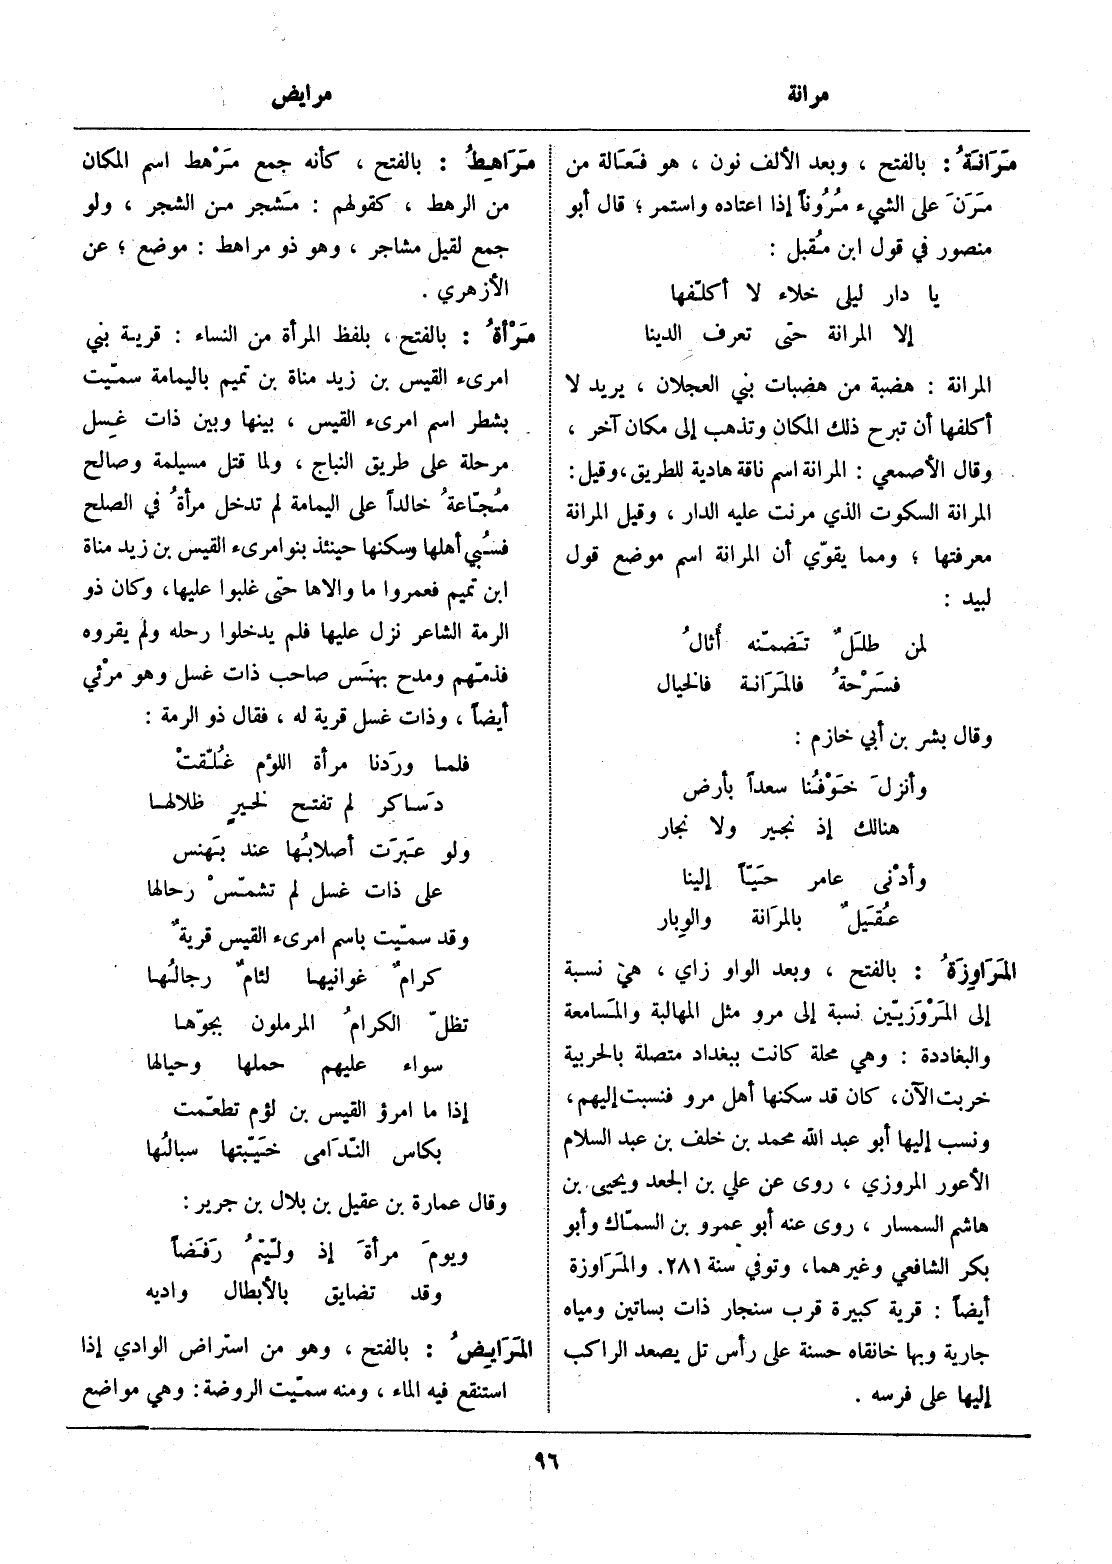 مرانة
مرايض
مَرَانَةُ : بالفتح ، وبعد الألف نون ، هو فَعَالة من
مَرَنَ على الشيء مُرُوناً إذا اعتاده واستمر ؛ قال أبو
منصور في قول ابن مُقبل :
يا دار ليلى خلاء لا أكلّفها
إلا المرانة حتّى تعرف الدينا
المرانة : هضبة من هضبات بني العجلان ، يريد لا
أكلفها أن تبرح ذلك المكان وتذهب إلى مكان آخر ،
وقال الأصمعي : المرانة اسم ناقة هادية للطريق ، وقيل :
المرانة السكوت الذي مرنت عليه الدار ، وقيل المرانة
معرفتها ؛ ومما يقوّي أن المرانة اسم موضع قول
لبيد :
لمن طللٌ تضمّنه أُثالُ
فسَرْحةُ فالمَرَانة فالخيال
وقال بشر بن أبي خازم :
وأنزلَ خوْفُنا سعداً بأرض
هنالك إذ نجير ولا نجار
وأدْنى عامر حَيّاً إلينا
عُقَيلٌ بالمرَانة والوِبار
المَرَاوِزَةُ : بالفتح ، وبعد الواو زاي ، هي نسبة
إلى المَرْوَزيّين نسبة إلى مرو مثل المهالبة والمَسامعة
والبغاددة : وهي محلة كانت ببغداد متصلة بالحربية
خربت الآن ، كان قد سكنها أهل مرو فنسبت إليهم ،
ونسب إليها أبو عبد الله محمد بن خلف بن عبد السلام
الأعور المروزي ، روى عن علي بن الجعد ويحيى بن
هاشم السمسار ، روى عنه أبو عمرو بن السمّاك وأبو
بكر الشافعي وغيرهما ، وتوفي سنة ٢٨١. والمَرَاوزة
أيضاً : قرية كبيرة قرب سنجار ذات بساتين ومياه
جارية وبها خانقاه حسنة على رأس تل يصعد الراكب
إليها على فرسه .
مَرَاهِطُ : بالفتح ، كأنه جمع مَرْهط اسم المكان
من الرهط ، كقولهم : مَشجر من الشجر ، ولو
جمع لقيل مشاجر ، وهو ذو مراهط : موضع ؛ عن
الأزهري .
مَرْأةُ : بالفتح ، بلفظ المرأة من النساء : قرية بني
امرىء القيس بن زيد مناة بن تميم باليمامة سمّيت
بشطر اسم امرىء القيس ، بينها وبين ذات غِسل
مرحلة على طريق النباج ، ولما قتل مسيلمة وصالح
مُجّاعةُ خالداً على اليمامة لم تدخل مرأةُ في الصلح
فسُبي أهلها وسكنها حينئذ بنو امرىء القيس بن زيد مناة
ابن تميم فعمروا ما والاها حتّى غلبوا عليها ، وكان ذو
الرمة الشاعر نزل عليها فلم يدخلوا رحله ولم يقروه
فذمّهم ومدح بهنَس صاحب ذات غسل وهو مرْئي
أيضاً ، وذات غسل قرية له ، فقال ذو الرمة :
فلما وردنا مرأة اللؤم غُلّقتْ
دَساكر لم تفتح لخيرٍ ظلالها
ولو عبَرَت أصلابُها عند بَهنس
على ذات غسل لم تشمّسْ رحالها
وقد سمّيت باسم امرىء القيس قريةٌ
كرامٌ غوانيها لئامٌ رجالُها
تظلّ الكرامُ المرملون بجوّها
سواء عليهم حملها وحيالها
إذا ما امرؤ القيس بن لؤم تطعّمت
بكاس النّدَامى خيّبتها سبالُها
وقال عمارة بن عقيل بن بلال بن جرير :
ويومَ مرأةَ إذ ولّيتمُ رَفَضاً
وقد تضايق بالأبطال واديه
المَرَايضُ : بالفتح ، وهو من استراض الوادي إذا
استنقع فيه الماء ، ومنه سمّيت الروضة : وهي مواضع
٩٦